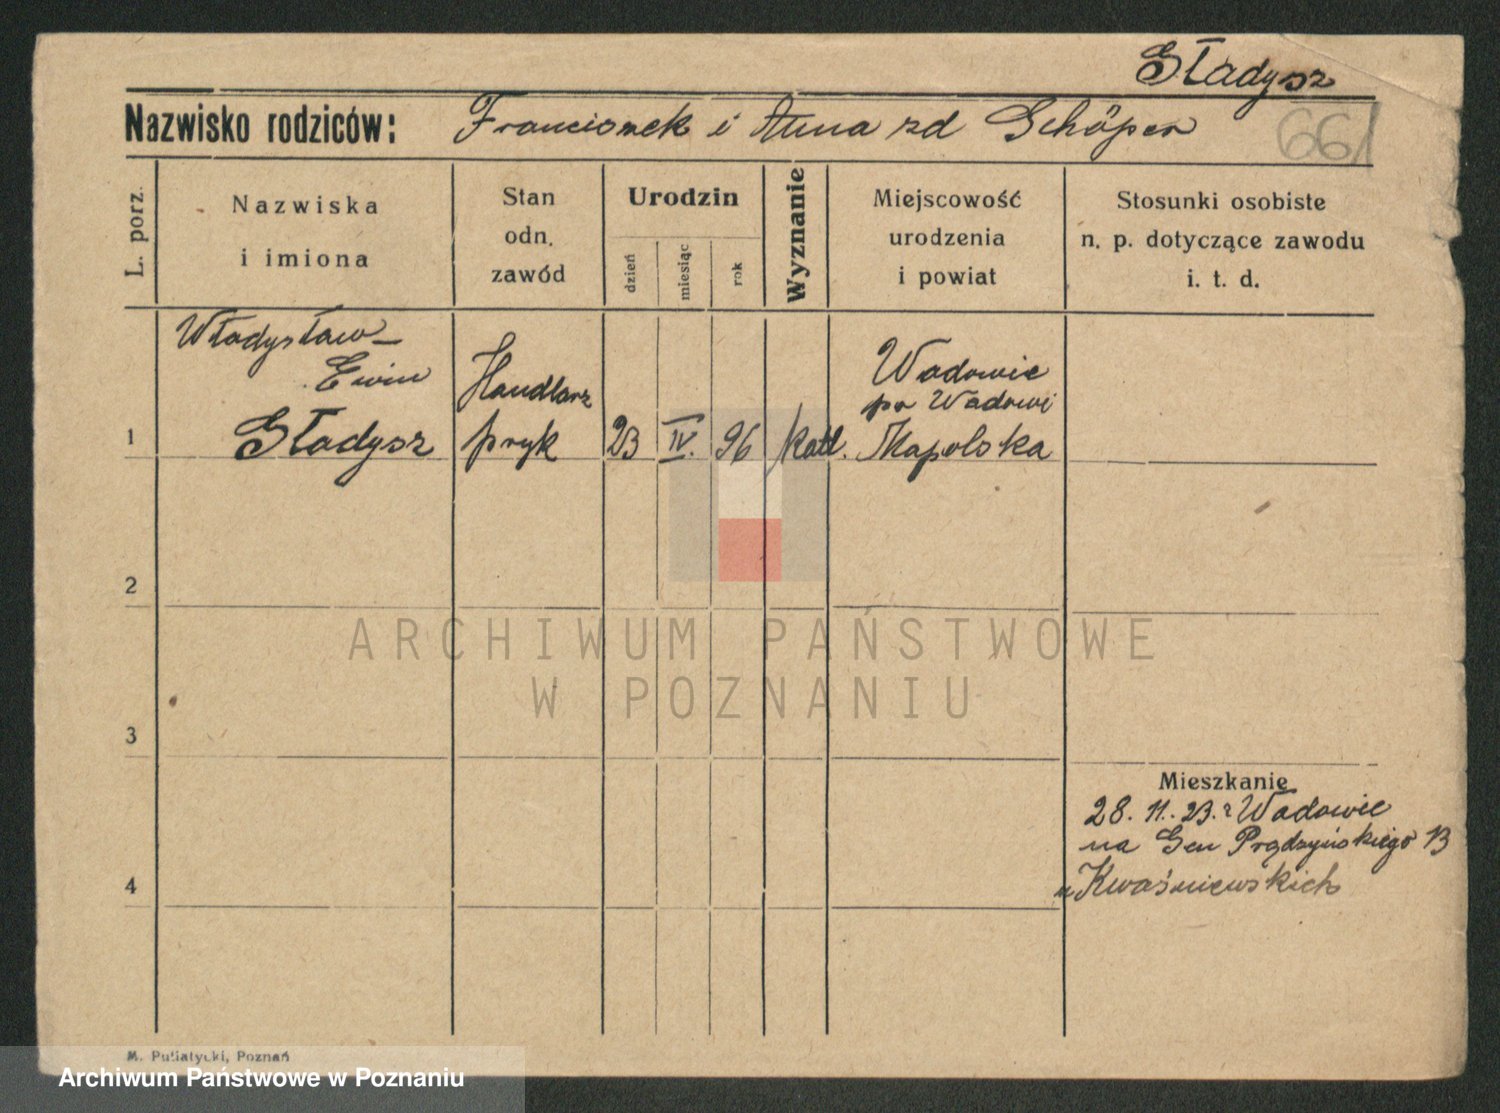 Gładysz
Nazwisko rodziców: Franciszek i Anna zd Schöper
661
L. porz.
Nazwiska
i imiona
Stan
odn.
zawód
Urodzin
dzień
miesiąc
rok
Wyznanie
Miejscowość
urodzenia
i powiat
Stosunki osobiste
n. p. dotyczące zawodu
i. t. d.
1
Władysław
Ewin
Gładysz
Handlarz
pryk
23
IV.
96
katl.
Wadowic
pr Wadowi
Małpolska
2
3
4
Mieszkanie
28. 11. 23. z Wadowic
na Gen Prądzyńskiego 13
u Kwaśniewskich
ARCHIWUM PAŃSTWOWE
W POZNANIU
M. Putiatycki, Poznań
Archiwum Państwowe w Poznaniu